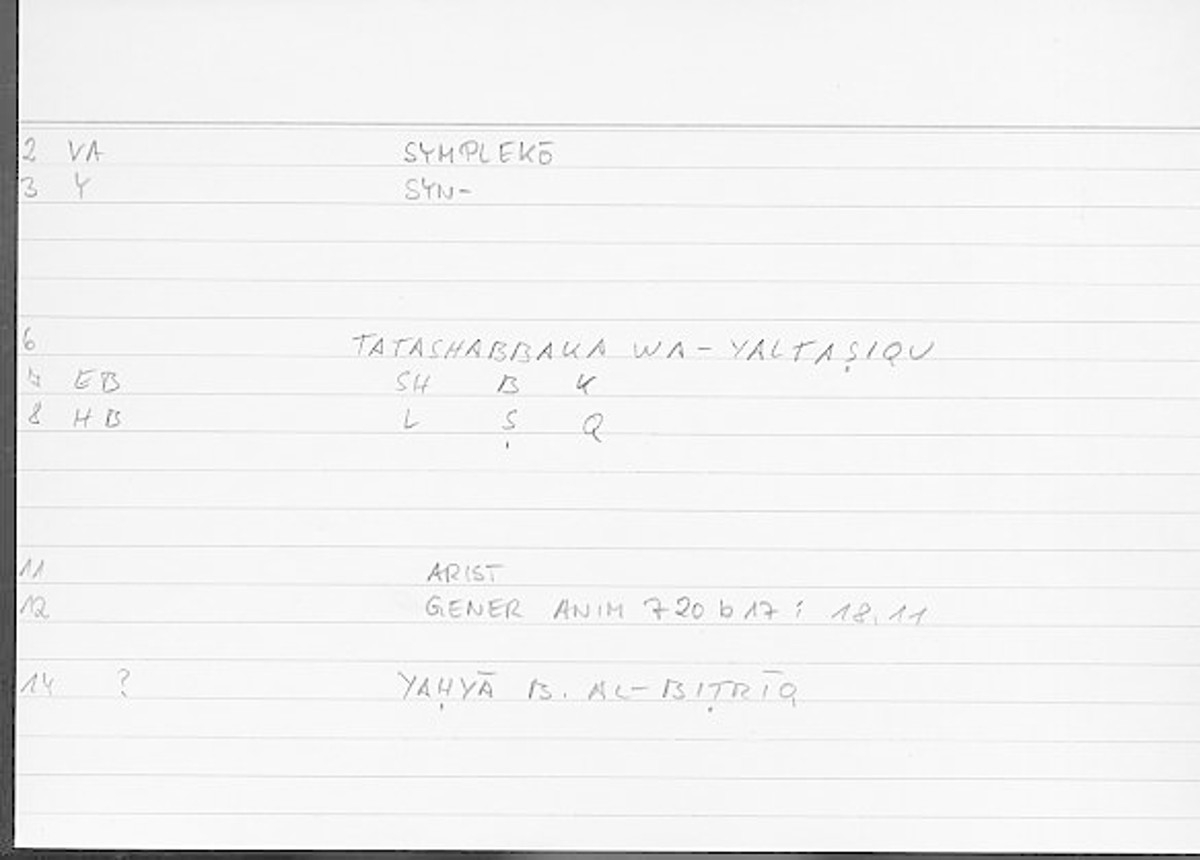 2 VA SYMPLEKŌ
3 Y SYN-
6 TATASHABBAKA WA-YALTAṢIQU
7 EB SH B K
8 HB L Ṣ Q
11 ARIST
12 GENER ANIM 720 b 17 : 18.11
14 ? YAḤYĀ B. AL-BIṬRĪQ